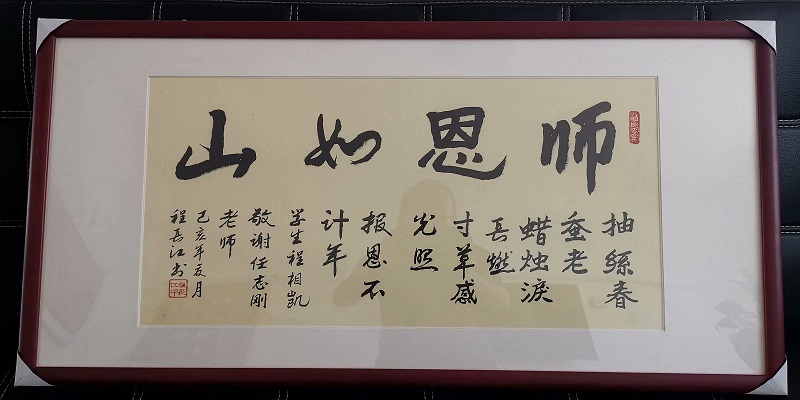 师恩如山
抽絲春
蚕老
蜡烛淚
長燃
寸草感
光照
报恩不
计年
学生程相凯
敬谢任志刚
老师
己亥年夏月
程長江书